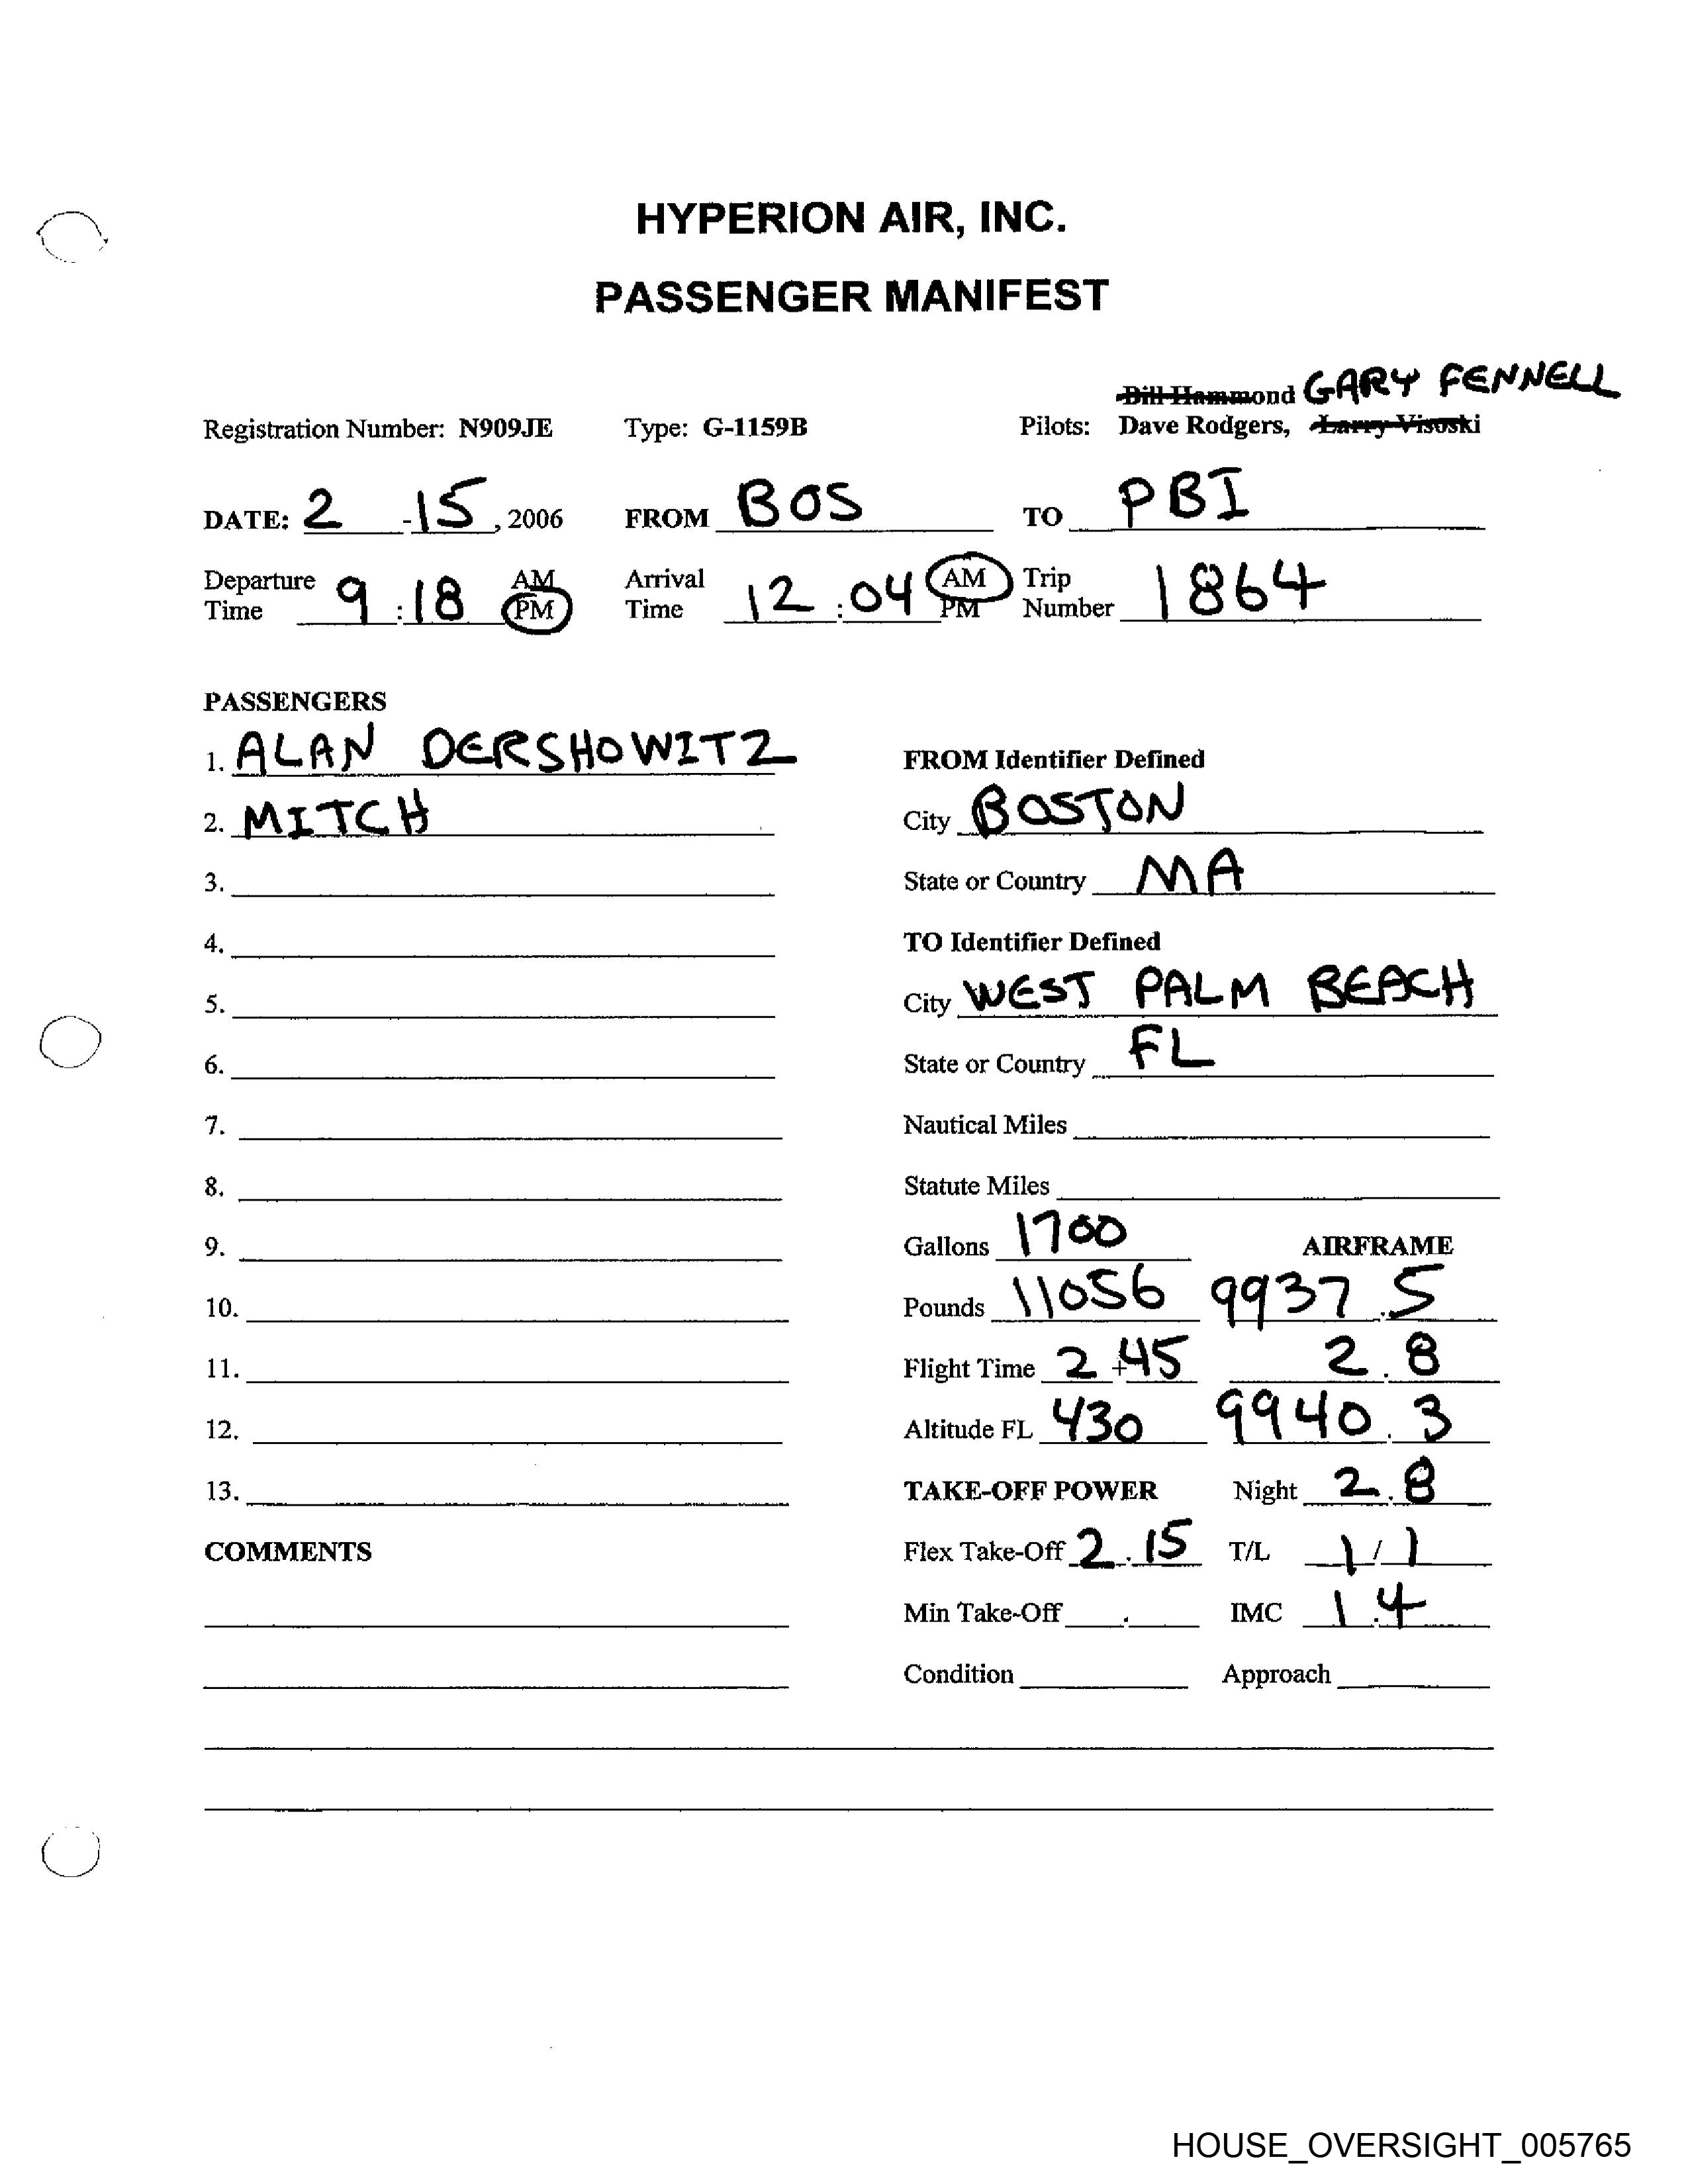 HYPERION AIR, INC.
PASSENGER MANIFEST
Bill Hammond GARY FENNELL
Registration Number: N909JE Type: G-1159B Pilots: Dave Rodgers, Larry Visoski
DATE: 2 - 15, 2006 FROM BOS TO PBI
Departure Time 9:18 AM PM Arrival Time 12:04 AM PM Trip Number 1864
PASSENGERS
1. ALAN DERSHOWITZ
2. MITCH
3.
4.
5.
6.
7.
8.
9.
10.
11.
12.
13.
COMMENTS
FROM Identifier Defined
City BOSTON
State or Country MA
TO Identifier Defined
City WEST PALM BEACH
State or Country FL
Nautical Miles
Statute Miles
Gallons 1700 AIRFRAME
Pounds 11056 9937.5
Flight Time 2+45 2.8
Altitude FL 430 9940.3
TAKE-OFF POWER Night 2.8
Flex Take-Off 2.15 T/L 1/1
Min Take-Off . IMC 1.4
Condition Approach
HOUSE_OVERSIGHT_005765